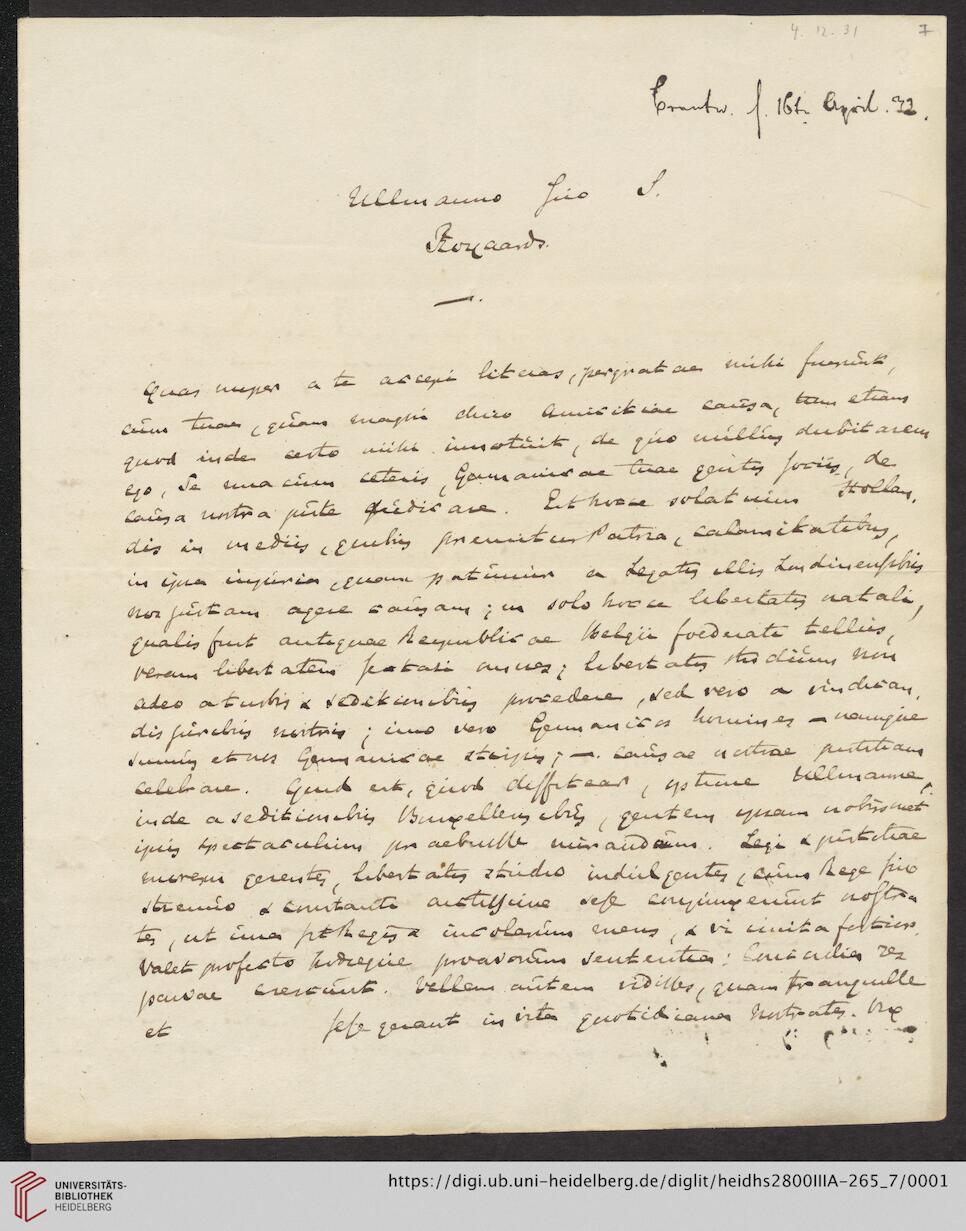 4. 12. 31 7
f. 16t. April. 32.
Ullmanno suo S.
Royaards.
Quas nuper a te accepi literas, pergratae mihi fuerunt,
cum tuae, quam magni duco amicitiae causa, tum etiam
quod inde certo mihi innotuit, de quo nullus dubitarem
ego, Te una cum ceteris, Germanicae tuae gentis sociis, de
causa nostra juste judicare. Est hocce solatium Hollan-
dis in mediis, quibus premitur Patria, calamitatibus,
in ipsa injuria, quam patimur a Legatis illis Londinensibus
nos justam agere causam; in solo hocce libertatis natali,
qualis fuit antiquae Reipublicae Belgii foederati tellus,
veram libertatem sectari omnes; libertatis studium non
adeo a turbis & seditionibus procedere, sed vero a vindican-
dis juribus nostris; imo vero Germanicos homines — namque
sumus et nos Germanicae stirpis; —. causae nostrae justitiam
celebrare. Quid est, quod diffitear, optime Ullmanne,
inde a seditionibus Bruxellensibus, gentem ipsam nobismet
ipsis spectaculum praebuisse mirandum. Legi & justitiae
morem gerentes, libertatis studio indulgentes, cum Rege suo
strenuo & constanti arctissime sese conjunxerunt nostra-
tes, ut una sit Regis & incolarum mens, & vi unita fortior.
Valet profecto hodieque proavorum sententia: Concordia res
parvae crescunt. Vellem autem vidisses, quam tranquille
et sese gerant in vita quotidiana nostrates. Vix
UNIVERSITÄTS-
BIBLIOTHEK
HEIDELBERG
https://digi.ub.uni-heidelberg.de/diglit/heidhs2800IIIA-265_7/0001